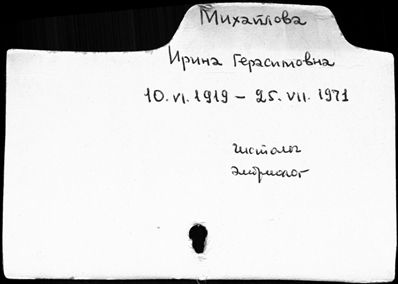 Михайлова
Ирина Герасимовна
10.VI.1919 – 25.VII.1971
гистолог
эмбриолог